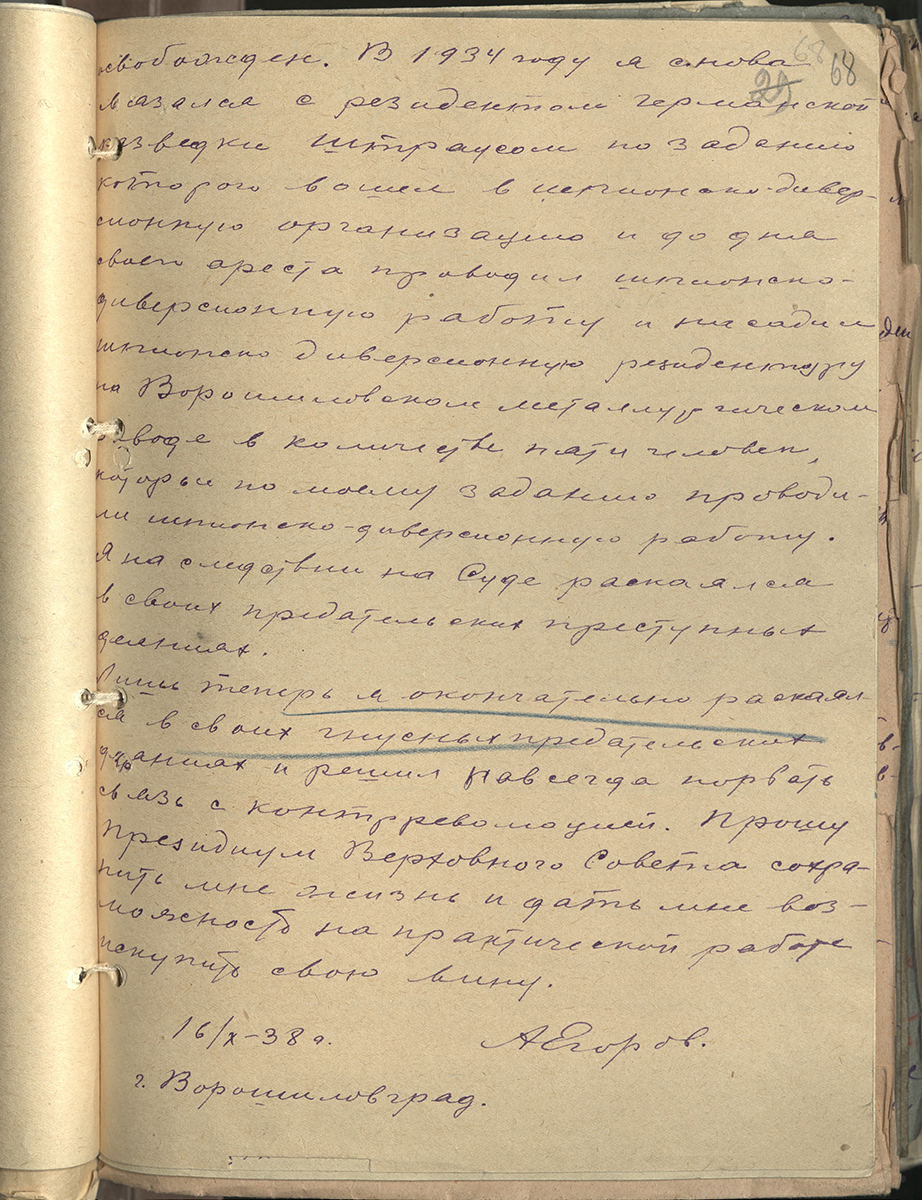 68 68
25
освобожден. В 1934 году я снова
связался с резидентом германской
разведки Штраусом по заданию
которого вошел в шпионско-дивер-
сионную организацию и до дня
своего ареста проводил шпионско-
диверсионную работу и насадил
шпионско диверсионную резидентуру
на Ворошиловском металлургическом
заводе в количестве пяти человек,
которые по моему заданию проводи-
ли шпионско-диверсионную работу.
Я на следствии на Суде раскаялся
в своих предательских преступных
деяниях.
Лишь теперь я окончательно раскаял-
ся в своих гнусных предательских
деяниях и решил навсегда порвать
связь с контрреволюцией. Прошу
Президиум Верховного Совета сохра-
нить мне жизнь и дать мне воз-
можность на практической работе
искупить свою вину.
16/X-38 г. АЕгоров.
г. Ворошиловград.